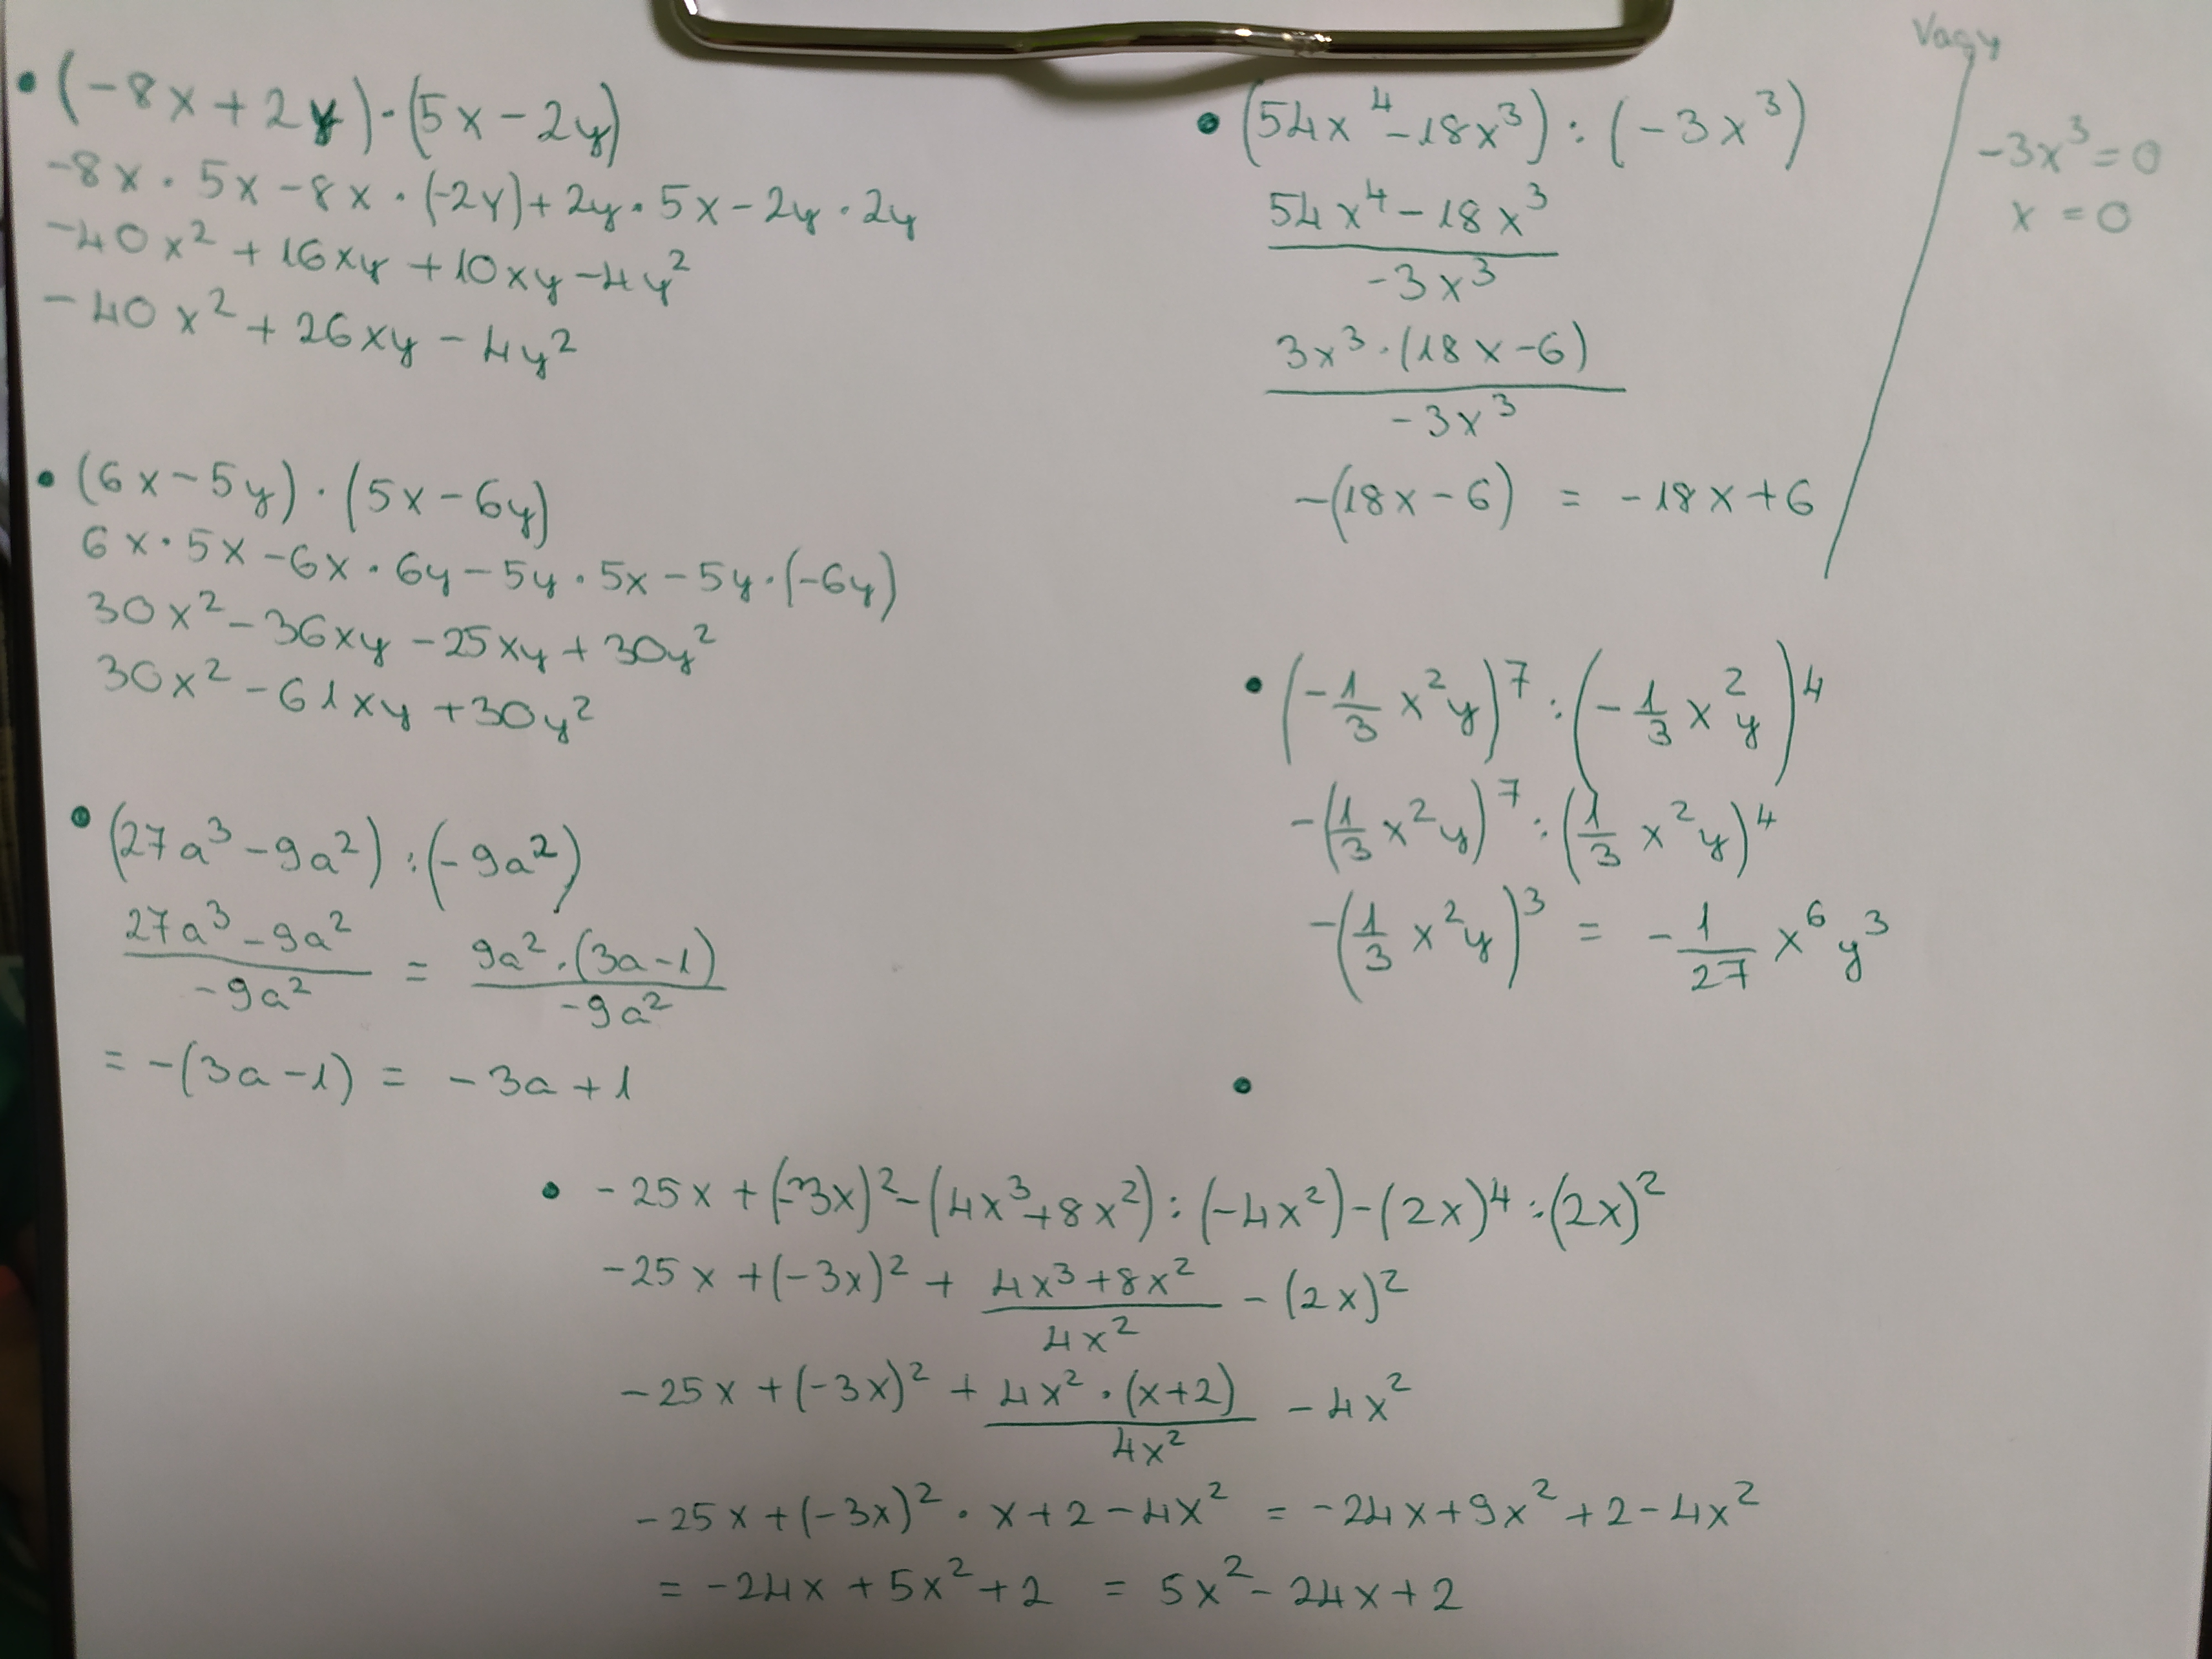 • (-8x+2y)·(5x-2y)
-8x·5x-8x·(-2y)+2y·5x-2y·2y
-40x²+16xy+10xy-4y²
-40x²+26xy-4y²
• (6x-5y)·(5x-6y)
6x·5x-6x·6y-5y·5x-5y·(-6y)
30x²-36xy-25xy+30y²
30x²-61xy+30y²
• (27a³-9a²):(-9a²)
(27a³-9a²)/(-9a²) = (9a²·(3a-1))/(-9a²)
= -(3a-1) = -3a+1
• (54x⁴-18x³):(-3x³)
(54x⁴-18x³)/(-3x³)
(3x³·(18x-6))/(-3x³)
-(18x-6) = -18x+6
Vagy
-3x³=0
x=0
• (-1/3 x²y)⁷:(-1/3 x²y)⁴
-(1/3 x²y)⁷:(1/3 x²y)⁴
-(1/3 x²y)³ = -1/27 x⁶y³
•
• -25x+(-3x)²-(4x³+8x²):(-4x²)-(2x)⁴:(2x)²
-25x+(-3x)²+(4x³+8x²)/(4x²)-(2x)²
-25x+(-3x)²+(4x²·(x+2))/(4x²)-4x²
-25x+(-3x)²·x+2-4x² = -24x+9x²+2-4x²
= -24x+5x²+2 = 5x²-24x+2